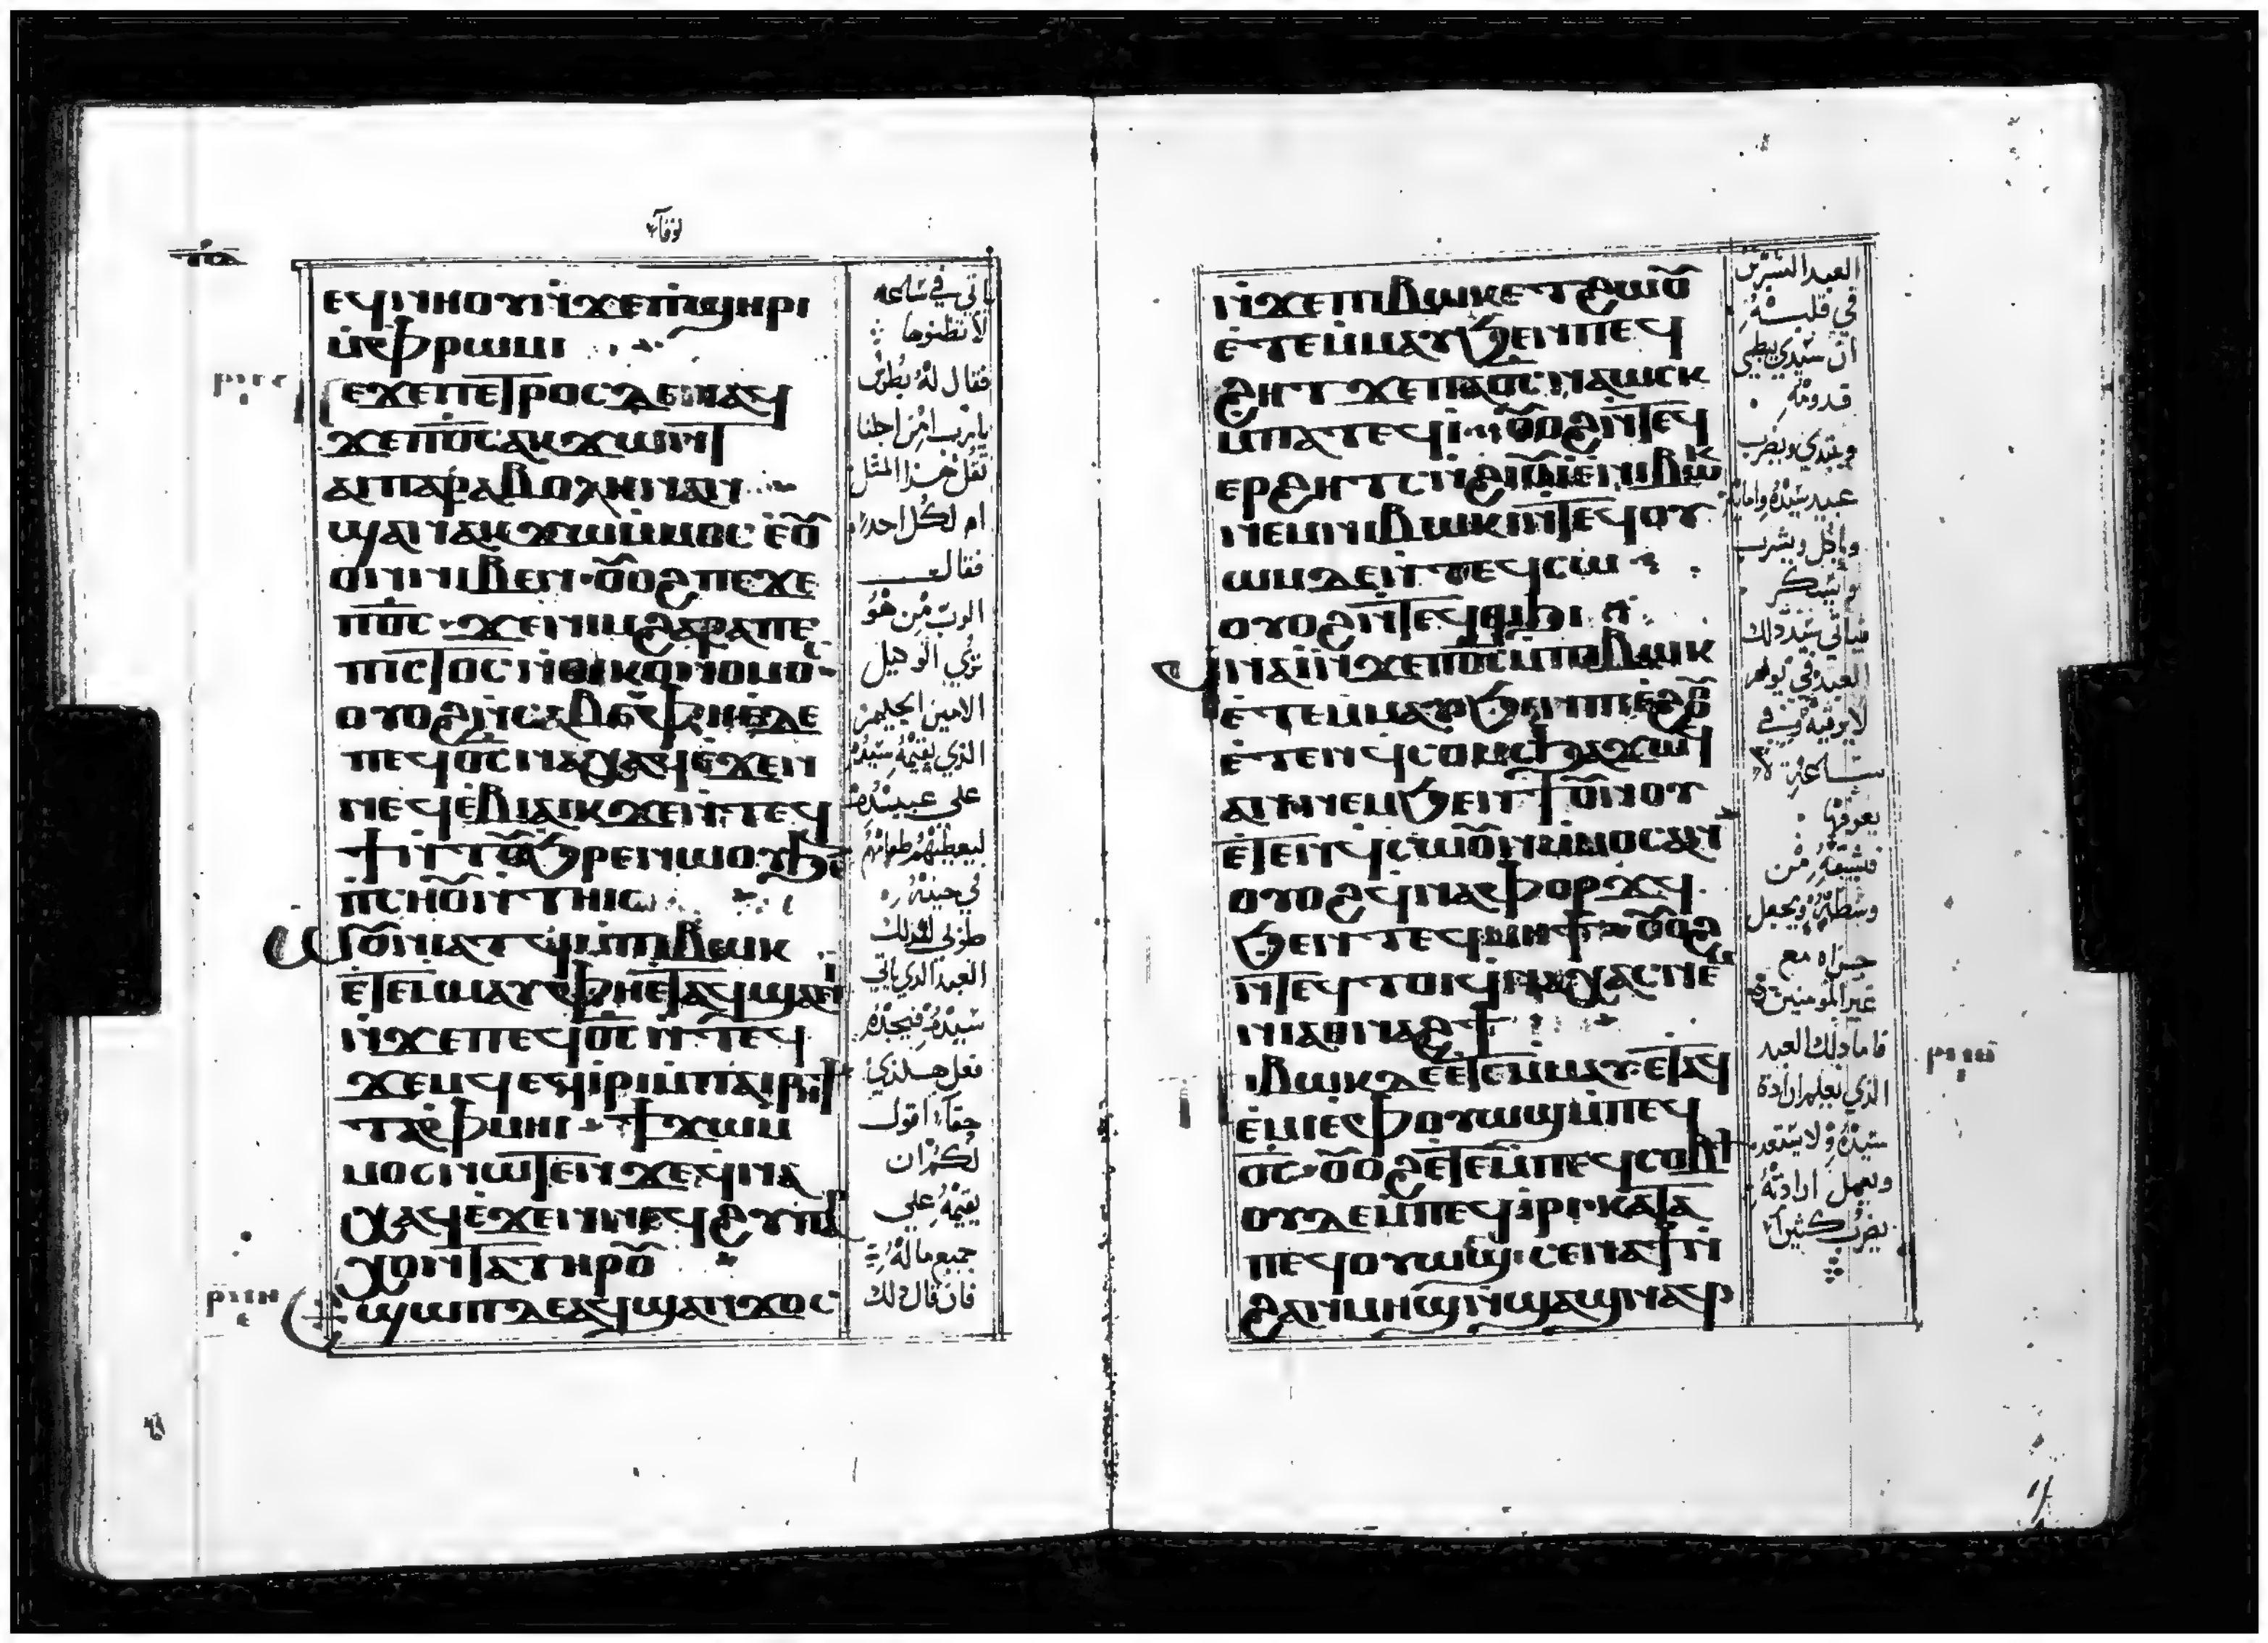 لوقا
ⲉϥⲛⲏⲟⲩ ⲛ̀ϫⲉⲡϣⲏⲣⲓ
ⲙ̀ⲫⲣⲱⲙⲓ
ⲡⲉϫⲉⲡⲉⲧⲣⲟⲥ ⲇⲉ ⲛⲁϥ
ϫⲉⲡⲟ̅ⲥ̅ ⲁⲕϫⲱ ⲛ̀ⲧ
ⲁⲓⲡⲁⲣⲁⲃⲟⲗⲏ ⲛⲁⲛ
ϣⲁⲛ ⲁⲕϫⲱ ⲙ̀ⲙⲟⲥ ⲉ̀ⲟⲩ
ⲟⲛ ⲛⲓⲃⲉⲛ ⲟⲩⲟϩ ⲡⲉϫⲉ
ⲡⲟ̅ⲥ̅ ϫⲉⲛⲓⲙ ϩⲁⲣⲁ ⲡⲉ
ⲡⲓⲥⲧⲟⲥ ⲛ̀ⲟⲓⲕⲟⲛⲟⲙⲟⲥ
ⲟⲩⲟϩ ⲛ̀ⲥⲁⲃⲉ ⲫⲏⲉⲧⲉ
ⲡⲉϥⲟ̅ⲥ̅ ⲛⲁⲭⲁϥ ⲉ̀ϫⲉⲛ
ⲛⲉϥⲉ̀ⲃⲓⲁⲓⲕ ϫⲉⲛⲧⲉϥ
ϯ ⲛ̀ⲧⲟⲩϧⲣⲉ ⲛⲱⲟⲩ ϧⲉⲛ
ⲡⲥⲏⲟⲩ ⲛ̀ⲧⲏⲓⲥ
ⲱⲟⲩⲛⲓⲁⲧϥ ⲙ̀ⲡⲓⲃⲱⲕ
ⲉ̀ⲧⲉⲙⲙⲁⲩ ⲫⲏⲉⲧⲁϥϣⲁⲛⲓ̀
ⲛ̀ϫⲉⲡⲉϥⲟ̅ⲥ̅ ⲛ̀ⲧⲉϥ
ϫⲉⲙϥ ⲉϥⲓⲣⲓ ⲙ̀ⲡⲁⲓⲣⲏϯ
ⲧⲁⲫⲙⲏⲓ ϯϫⲱ ⲙ̀
ⲙⲟⲥ ⲛⲱⲧⲉⲛ ϫⲉϥⲛⲁ
ⲭⲁϥ ⲉ̀ϫⲉⲛ ⲛⲉϥϩⲩⲡⲁⲣ
ⲭⲟⲛⲧⲁ ⲧⲏⲣⲟⲩ
ⲉϣⲱⲡ ⲇⲉ ⲁϥϣⲁⲛϫⲟⲥ
ياتي في ساعه
لا تظنوها
فقال له بطرس
يارب امن اجلنا
تقول هذا المثل
ام لكل احد
فقال
الرب من هو
تري الوكيل
الامين الحكيم
الذي يقيمه سيده
على عبيده
ليعطيهم طعامهم
في حينه
طوبي لذلك
العبد الذي ياتي
سيده فيجده
فعل هكذي
حقا اقول
لكم ان
يقيمه علي
جميع ماله
فان قال ذلك
ⲛ̀ϫⲉⲡⲓⲃⲱⲕ ⲉⲧϩⲱⲟⲩ
ⲉ̀ⲧⲉⲙⲙⲁⲩ ϧⲉⲛ ⲡⲉϥ
ϩⲏⲧ ϫⲉⲡⲁⲟ̅ⲥ̅ ⲛⲁⲱⲥⲕ
ⲙ̀ⲡⲁⲧⲉϥⲓ̀ ⲟⲩⲟϩ ⲛ̀ⲧⲉϥ
ⲉⲣϩⲏⲧⲥ ⲛ̀ϩⲓⲟⲩⲓ̀ ⲉ̀ⲛⲓⲃⲱⲕ
ⲛⲉⲙ ⲛⲓⲃⲱⲕⲓ ⲛ̀ⲧⲉϥⲟⲩ
ⲱⲙ ⲇⲉ ⲛ̀ⲧⲉϥⲥⲱ
ⲟⲩⲟϩ ⲛ̀ⲧⲉϥⲑⲓϧⲓ
ϥⲛⲁⲓ̀ ⲛ̀ϫⲉⲡⲟ̅ⲥ̅ ⲙ̀ⲡⲓⲃⲱⲕ
ⲉ̀ⲧⲉⲙⲙⲁⲩ ϧⲉⲛ ⲡⲓⲉ̀ϩⲟⲟⲩ
ⲉ̀ⲧⲉⲛϥⲥⲟⲙⲥ ϧⲁϫⲱϥ
ⲁⲛ ⲛⲉⲙ ϧⲉⲛ ϯⲟⲩⲛⲟⲩ
ⲉ̀ⲧⲉⲛϥⲥⲱⲟⲩⲛ ⲙ̀ⲙⲟⲥ ⲁⲛ
ⲟⲩⲟϩ ϥⲛⲁⲫⲟⲣϫϥ
ϧⲉⲛ ⲧⲉϥⲙⲏϯ ⲟⲩⲟϩ
ⲛ̀ⲧⲉϥⲧⲟⲓ ϥⲛⲁⲭⲁⲥ ⲛⲉⲙ
ⲛⲓⲁⲑⲛⲁϩϯ
ⲡⲓⲃⲱⲕ ⲇⲉ ⲉ̀ⲧⲉⲙⲙⲁⲩ ⲉⲧⲁϥ
ⲉ̀ⲙⲓ ⲉⲫⲟⲩⲱϣ ⲙ̀ⲡⲉϥ
ⲟ̅ⲥ̅ ⲟⲩⲟϩ ⲉⲧⲉⲙ̀ⲡⲉϥⲥⲟⲃϯ
ⲟⲩⲇⲉ ⲙ̀ⲡⲉϥⲓⲣⲓ ⲕⲁⲧⲁ
ⲡⲉϥⲟⲩⲱϣ ⲥⲉⲛⲁϯ ⲛ̀
ϩⲁⲛⲙⲏϣ ⲛ̀ϣⲁϣ ⲛⲁϥ
العبد الشرير
في قلبه
ان سيدي يبطي
قدومه
ويبتدي ويضرب
عبيد سيده واماته
وياكل ويشرب
ويسكر
فياتي سيد ذلك
العبد في يوم
لا يرقبه وفي
ساعة لا
يعرفها
فيشقه من
وسطه ويجعل
جزاه مع
غير المومنين
فاما ذلك العبد
الذي يعلم ارادة
سيده ولا يستعد
ويعمل ارادته
يضرب كثيرا